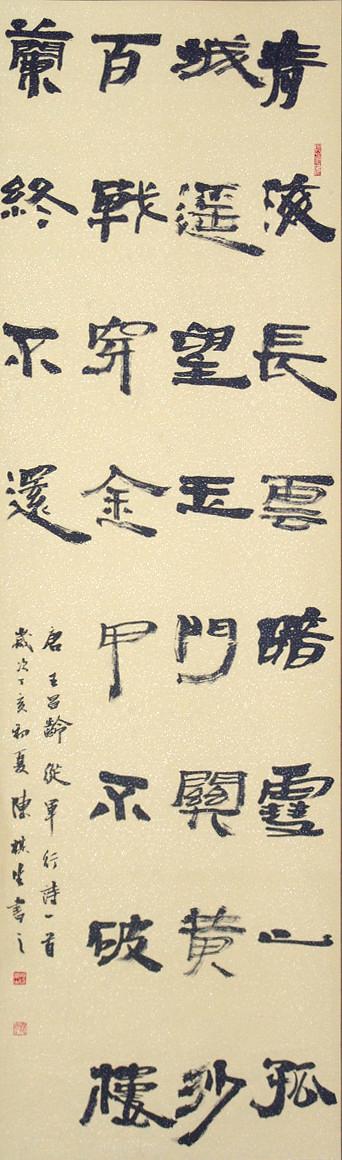 青海長雲暗雪山孤
城遥望玉門關黄沙
百戰穿金甲不破樓
蘭終不還
唐王昌齡從軍行詩一首
歲次丁亥初夏陳生書之